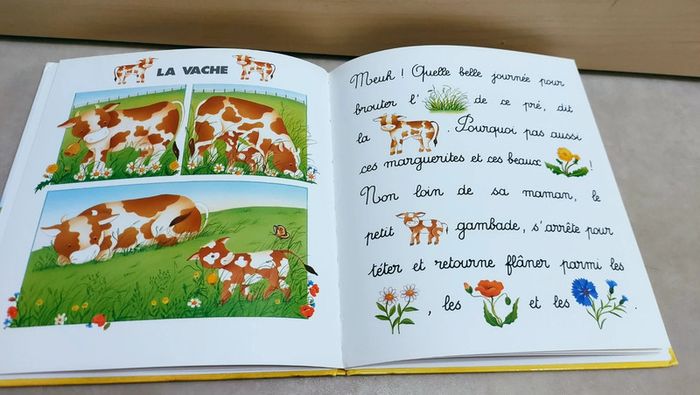 LA VACHE
Meuh ! Quelle belle journée pour
brouter l' de ce pré, dit
la . Pourquoi pas aussi
ces marguerites et ces beaux !
Non loin de sa maman, le
petit gambade, s'arrête pour
téter et retourne flâner parmi les
, les et les .